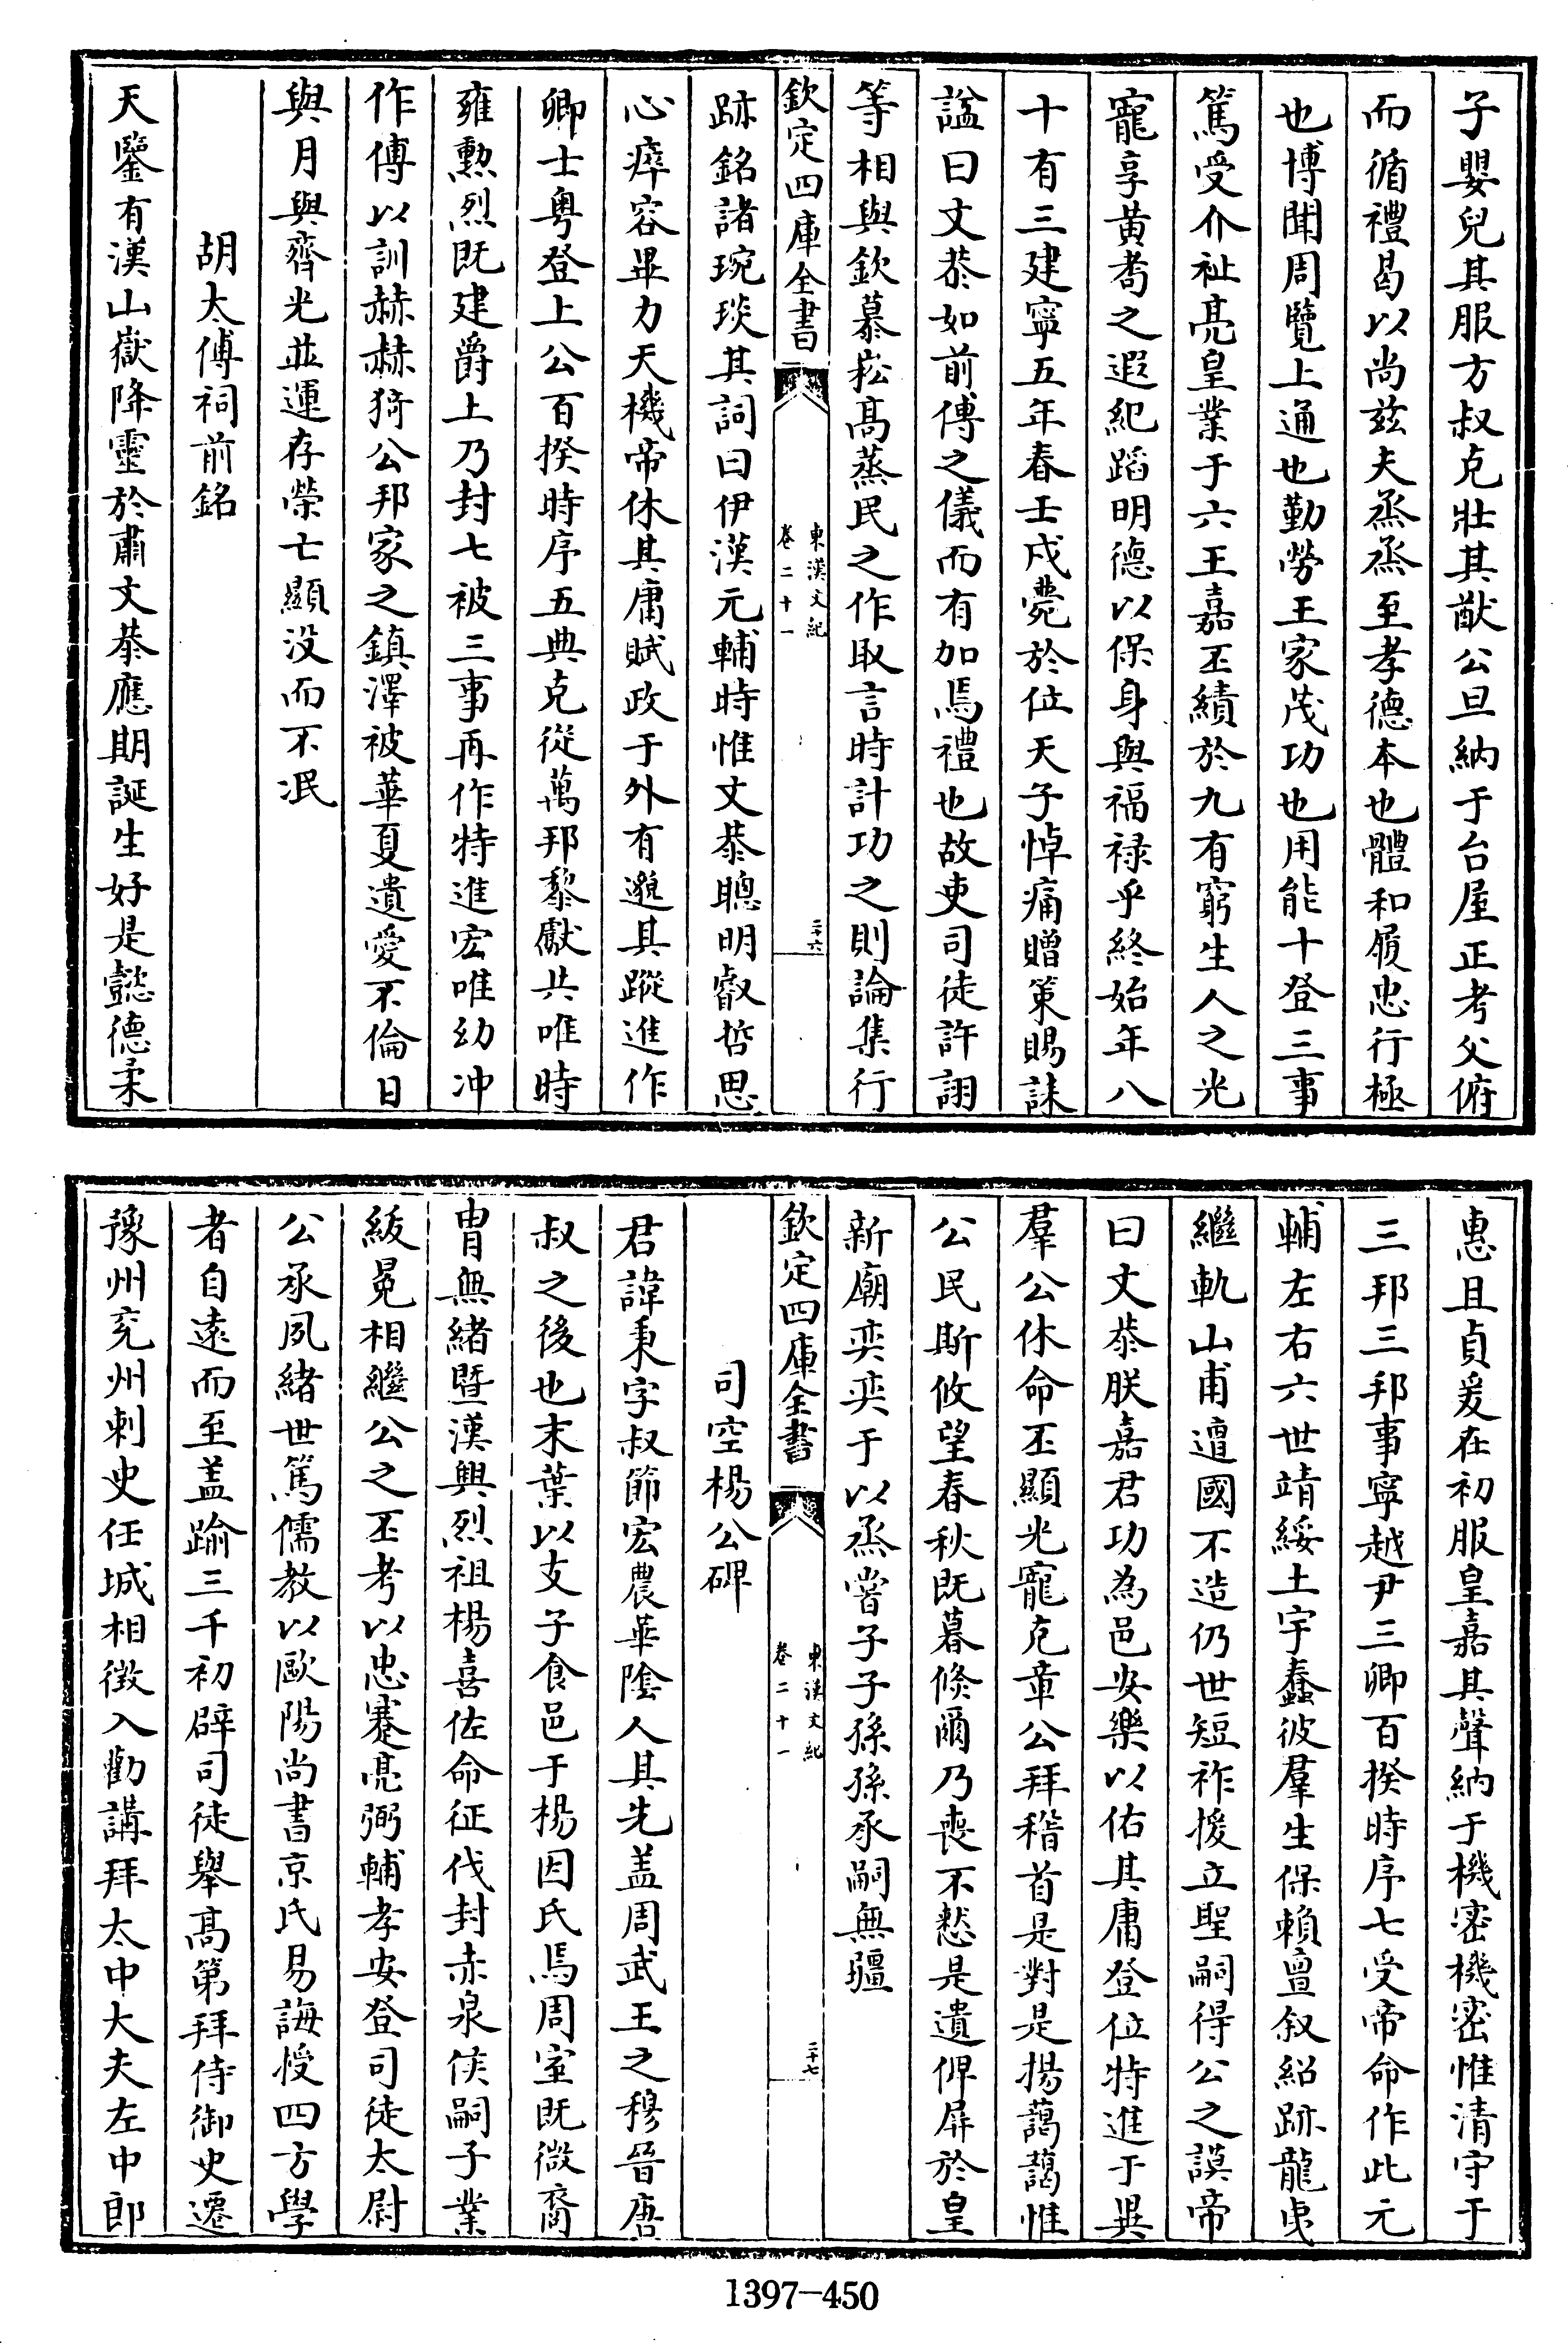 子嬰兒其服方叔克壯其猷公旦納于台屋正考父俯
而循禮曷以尚兹夫烝烝至孝德本也體和履忠行極
也博聞周覽上通也勤勞王家茂功也用能十登三事
篤受介祉亮皇業于六王嘉丕績於九有窮生人之光
寵享黄耇之遐紀蹈明德以保身與福禄乎終始年八
十有三建寧五年春壬戌薨於位天子悼痛贈策賜誄
諡曰文恭如前傅之儀而有加焉禮也故吏司徒許詡
等相與欽慕崧髙蒸民之作取言時計功之則論集行
欽定四庫全書
東漢文紀
卷二十一
二十六
跡銘諸琬琰其詞曰伊漢元輔時惟文恭聰明叡哲思
心瘁容畢力天機帝休其庸賦政于外有邈其蹤進作
卿士粤登上公百揆時序五典克從萬邦黎獻共唯時
雍勲烈既建爵上乃封七被三事再作特進宏唯幼冲
作傅以訓赫赫猗公邦家之鎮澤被華夏遺愛不倫日
與月與齊光並運存榮亡顯没而不泯
胡太傅祠前銘
天鑒有漢山嶽降靈於肅文恭應期誕生好是懿德柔
惠且貞爰在初服皇嘉其聲納于機密機密惟清守于
三邦三邦事寧越尹三卿百揆時序七受帝命作此元
輔左右六世靖綏土宇蠢彼羣生保賴亶叙紹跡龍夷
繼軌山甫遭國不造仍世短祚援立聖嗣得公之謨帝
曰文恭朕嘉君功為邑安樂以佑其庸登位特進于異
羣公休命丕顯光寵克章公拜稽首是對是揚藹藹惟
公民斯攸望春秋既暮倏爾乃喪不憖是遺俾屏於皇
新廟奕奕于以烝嘗子子孫孫承嗣無疆
欽定四庫全書
東漢文紀
卷二十一
二十七
司空楊公碑
君諱秉字叔節宏農華陰人其先盖周武王之穆晉唐
叔之後也末葉以支子食邑于楊因氏焉周室既微裔
胄無緒暨漢興烈祖楊喜佐命征伐封赤泉侯嗣子業
紱冕相繼公之丕考以忠蹇亮弼輔孝安登司徒太尉
公承夙緒世篤儒教以歐陽尚書京氏易誨授四方學
者自遠而至盖踰三千初辟司徒舉髙第拜侍御史遷
豫州兖州刺史任城相徴入勸講拜太中大夫左中郎
1397-450